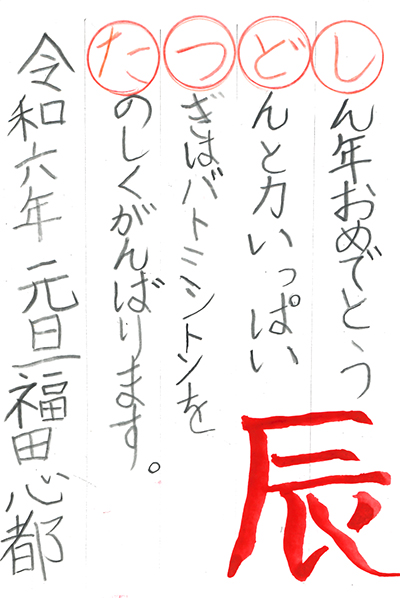 しん年おめでとう
どんと力いっぱい
つぎはバトミントンを
たのしくがんばります。
令和六年 元旦 福田心都
辰